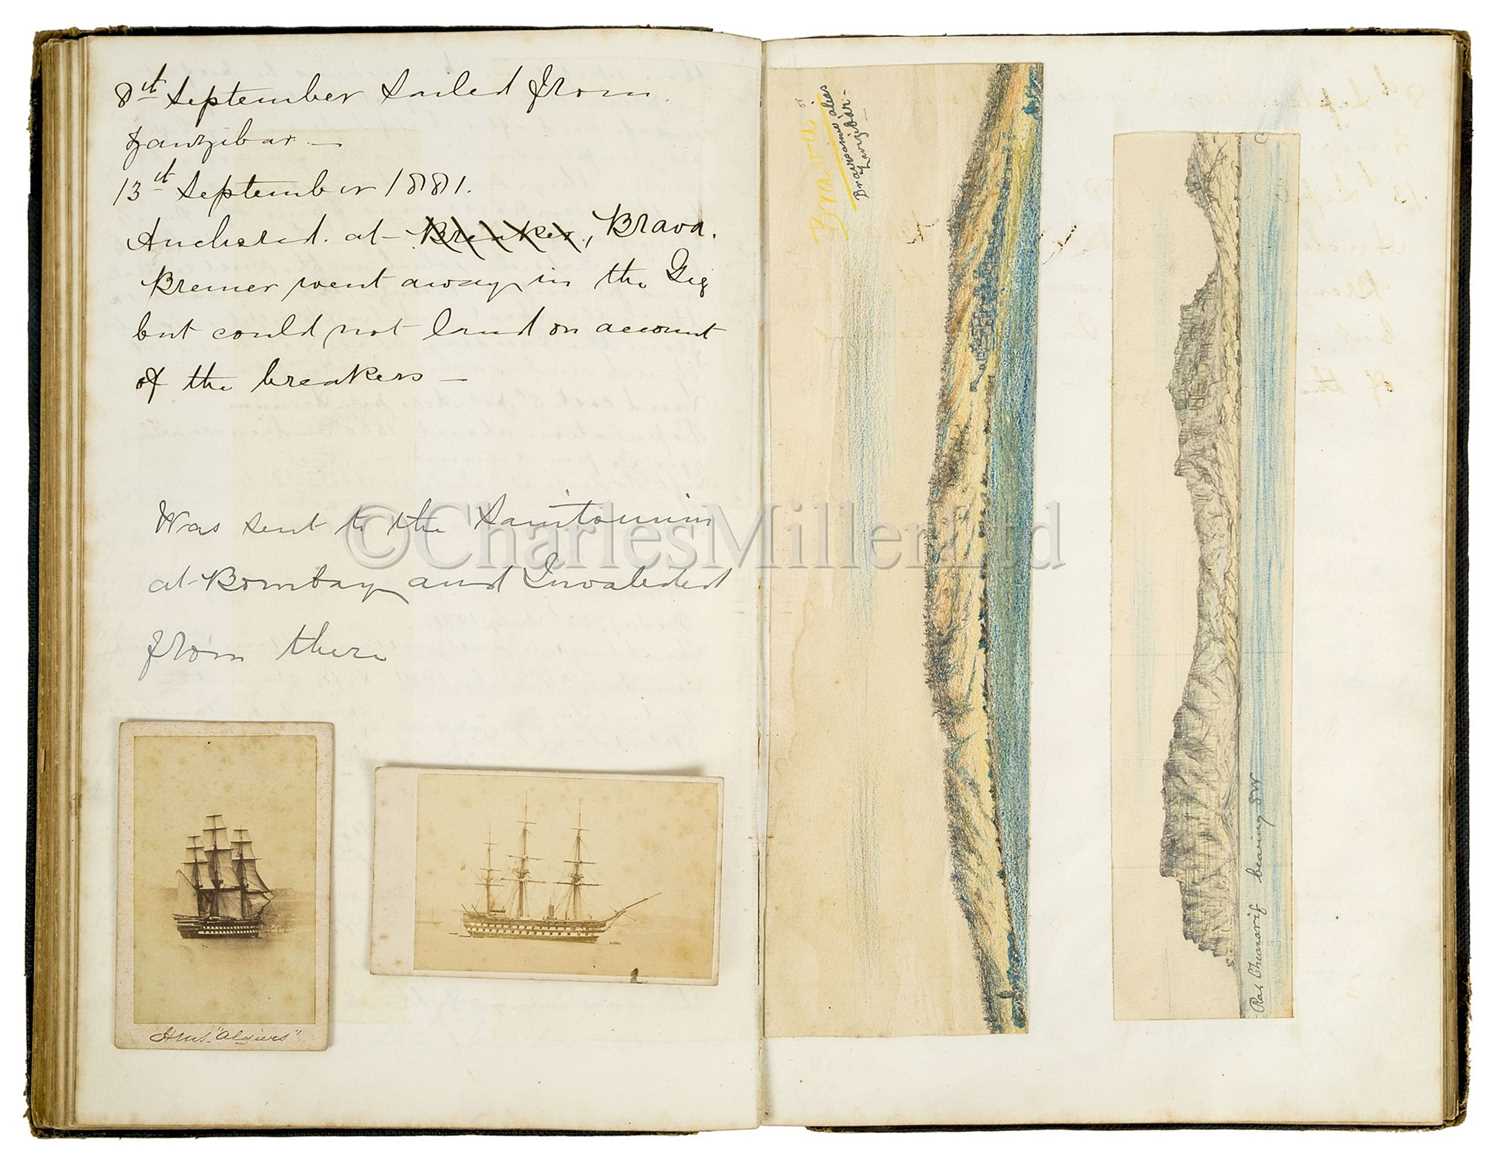 8th September Sailed from
Zanzibar —
13th September 1881.
Anchored at Breaker, Brava.
Bremer went away in the Gig
but could not land on account
of the breakers —
Was sent to the Sanitorium
at Bombay and Invalided
from there
H.M.S. "Algiers"
Brava
alias
Zanzibar.
Ras bearing SW
©CharlesMillerLtd